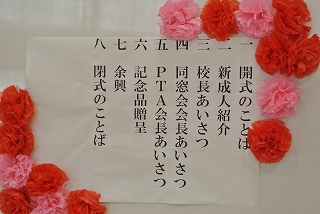 一 開式のことば
二 新成人紹介
三 校長あいさつ
四 同窓会会長あいさつ
五 PTA会長あいさつ
六 記念品贈呈
七 余興
八 閉式のことば